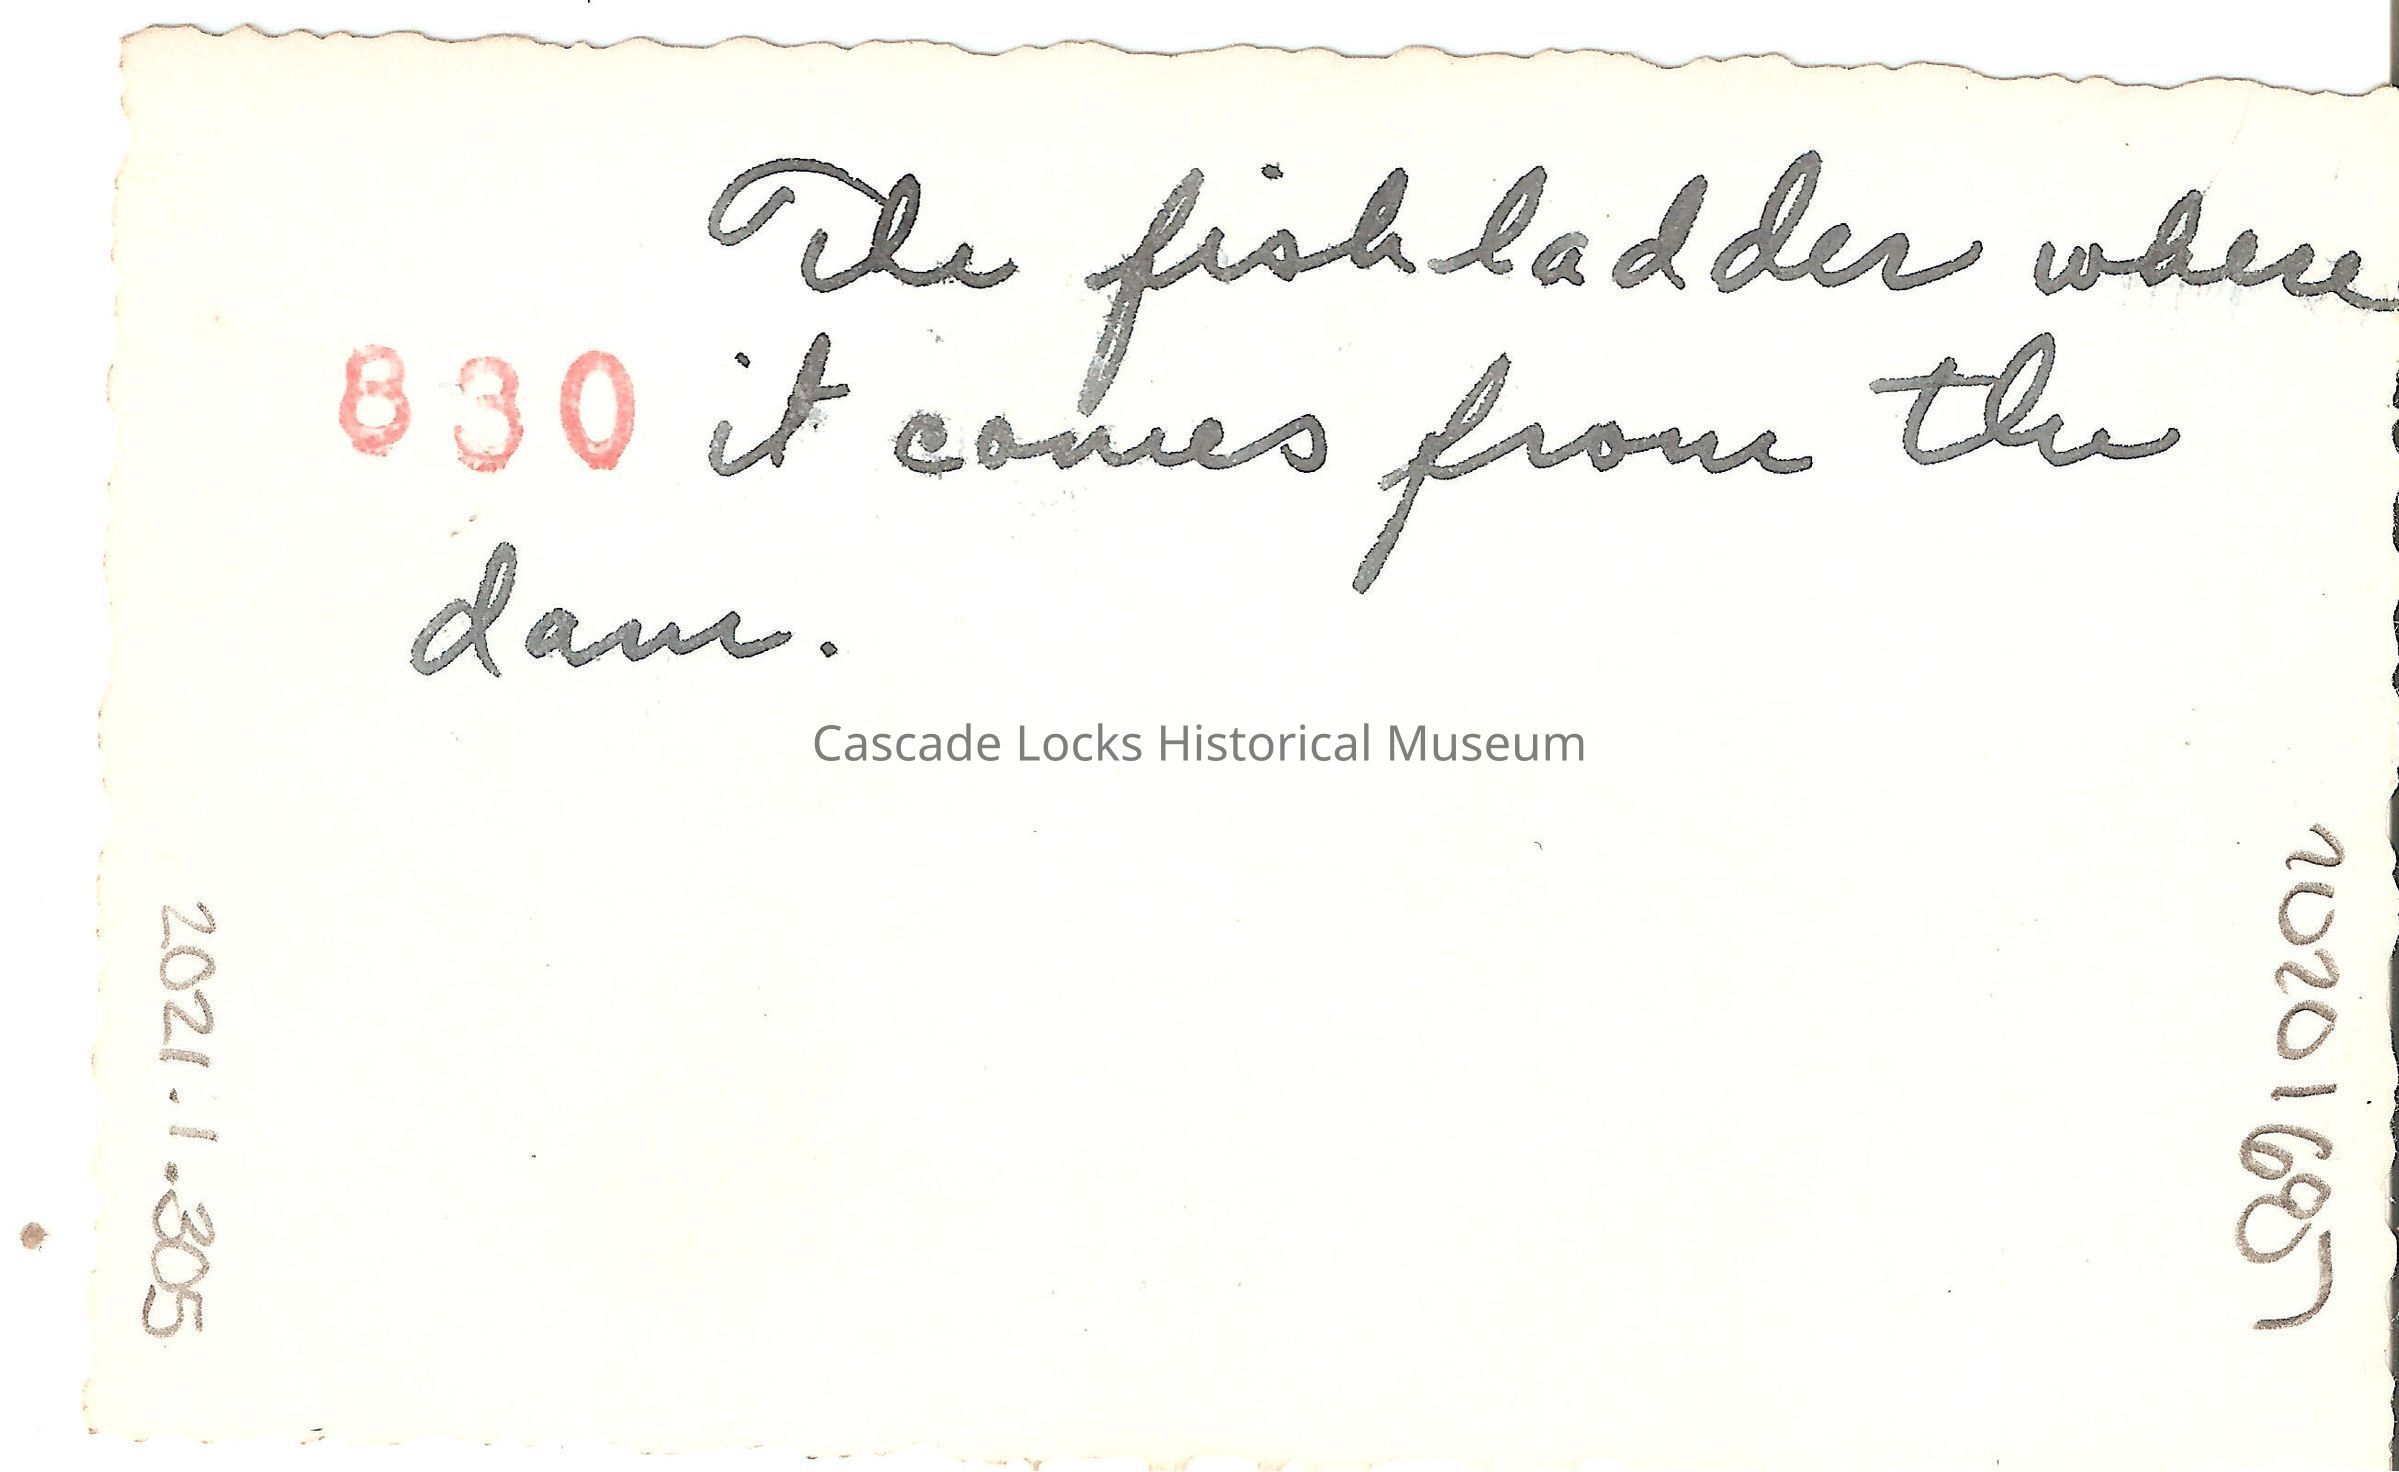 The fish ladder where
830 it comes from the
dam.
Cascade Locks Historical Museum
2021.1.305